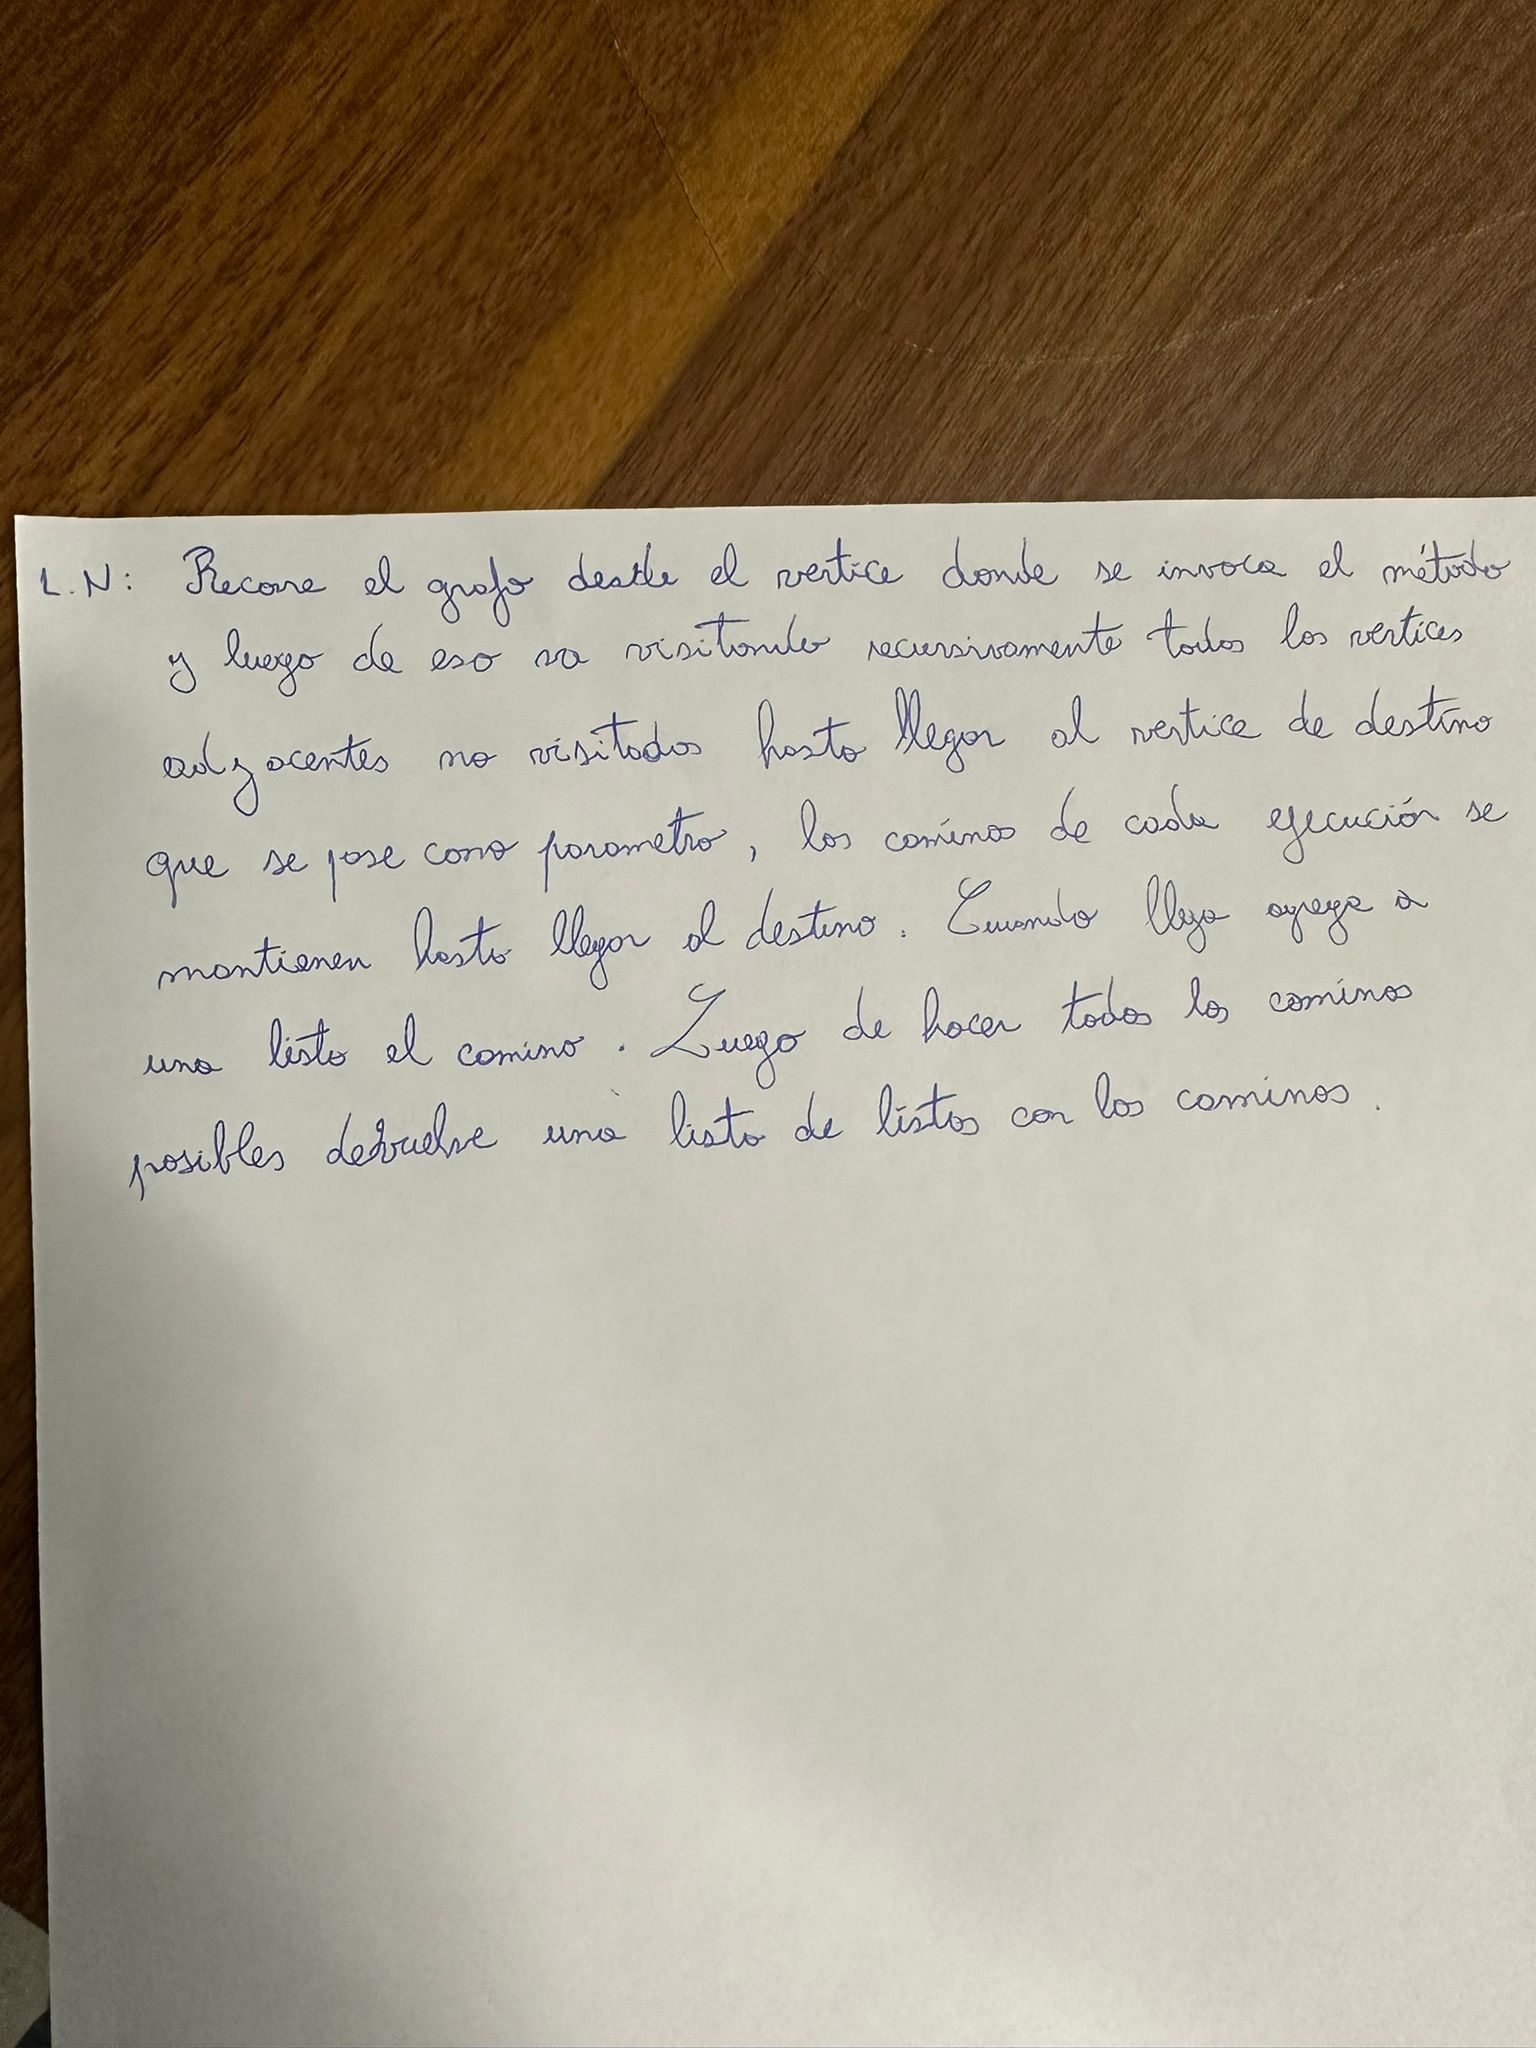 L.N: Recorre el grafo desde el vertice donde se invoca el método
y luego de eso va visitando recursivamente todos los vertices
adyacentes no visitados hasta llegar al vertice de destino
que se pase como parametro, los caminos de cada ejecución se
mantienen hasta llegar al destino. Cuando llega agrega a
una lista el camino. Luego de hacer todos los caminos
posibles devuelve una lista de listas con los caminos.